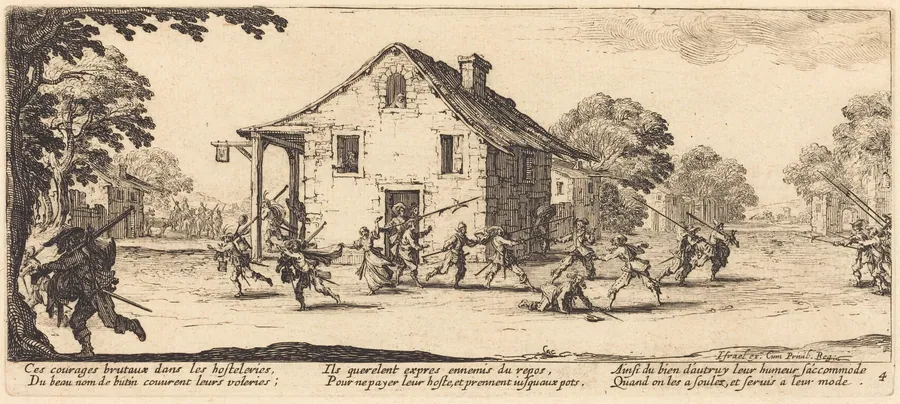 Israel ex. Cum Priuil. Reg.
Ces courages brutaux dans les hosteleries,
Du beau nom de butin couurent leurs voleries ;
Ils querelent expres ennemis du repos,
Pour ne payer leur hoste, et prennent iusquaux pots.
Ainsi du bien dautruy leur humeur saccommode
Quand on les a soulez, et seruis a leur mode .
4